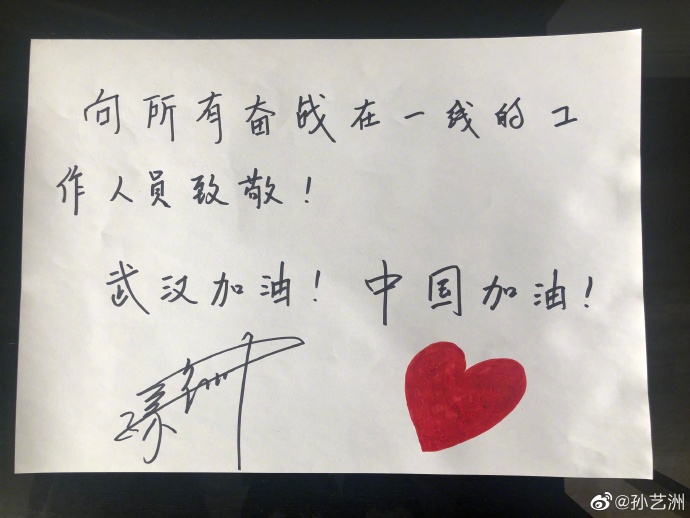 向所有奋战在一线的工
作人员致敬！
武汉加油！中国加油！
@孙艺洲